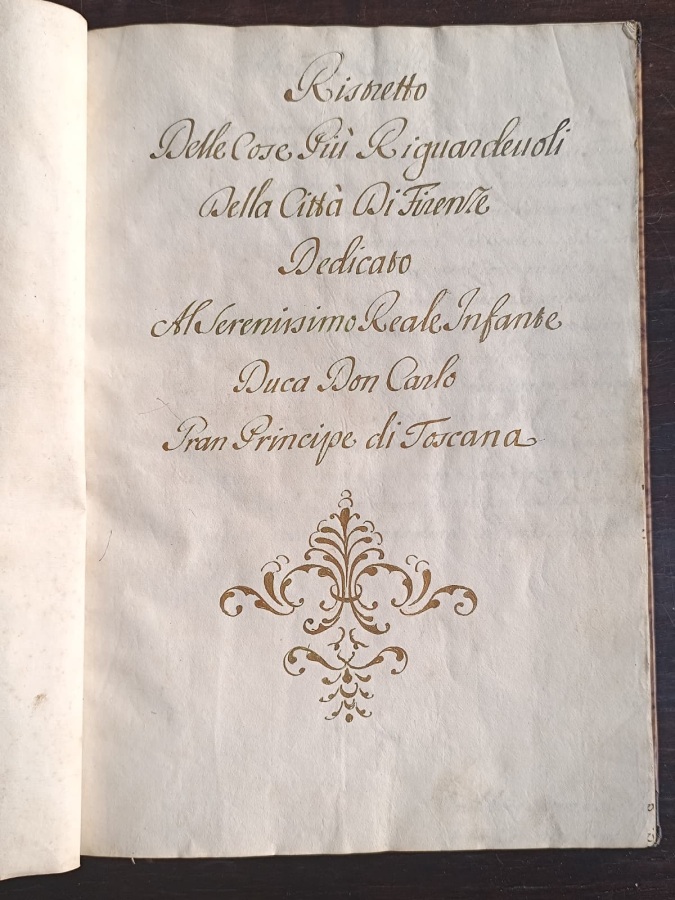 Ristretto
Delle Cose Più Riguardevoli
Della Città Di Firenze
Dedicato
Al Serenissimo Reale Infante
Duca Don Carlo
Gran Principe di Toscana